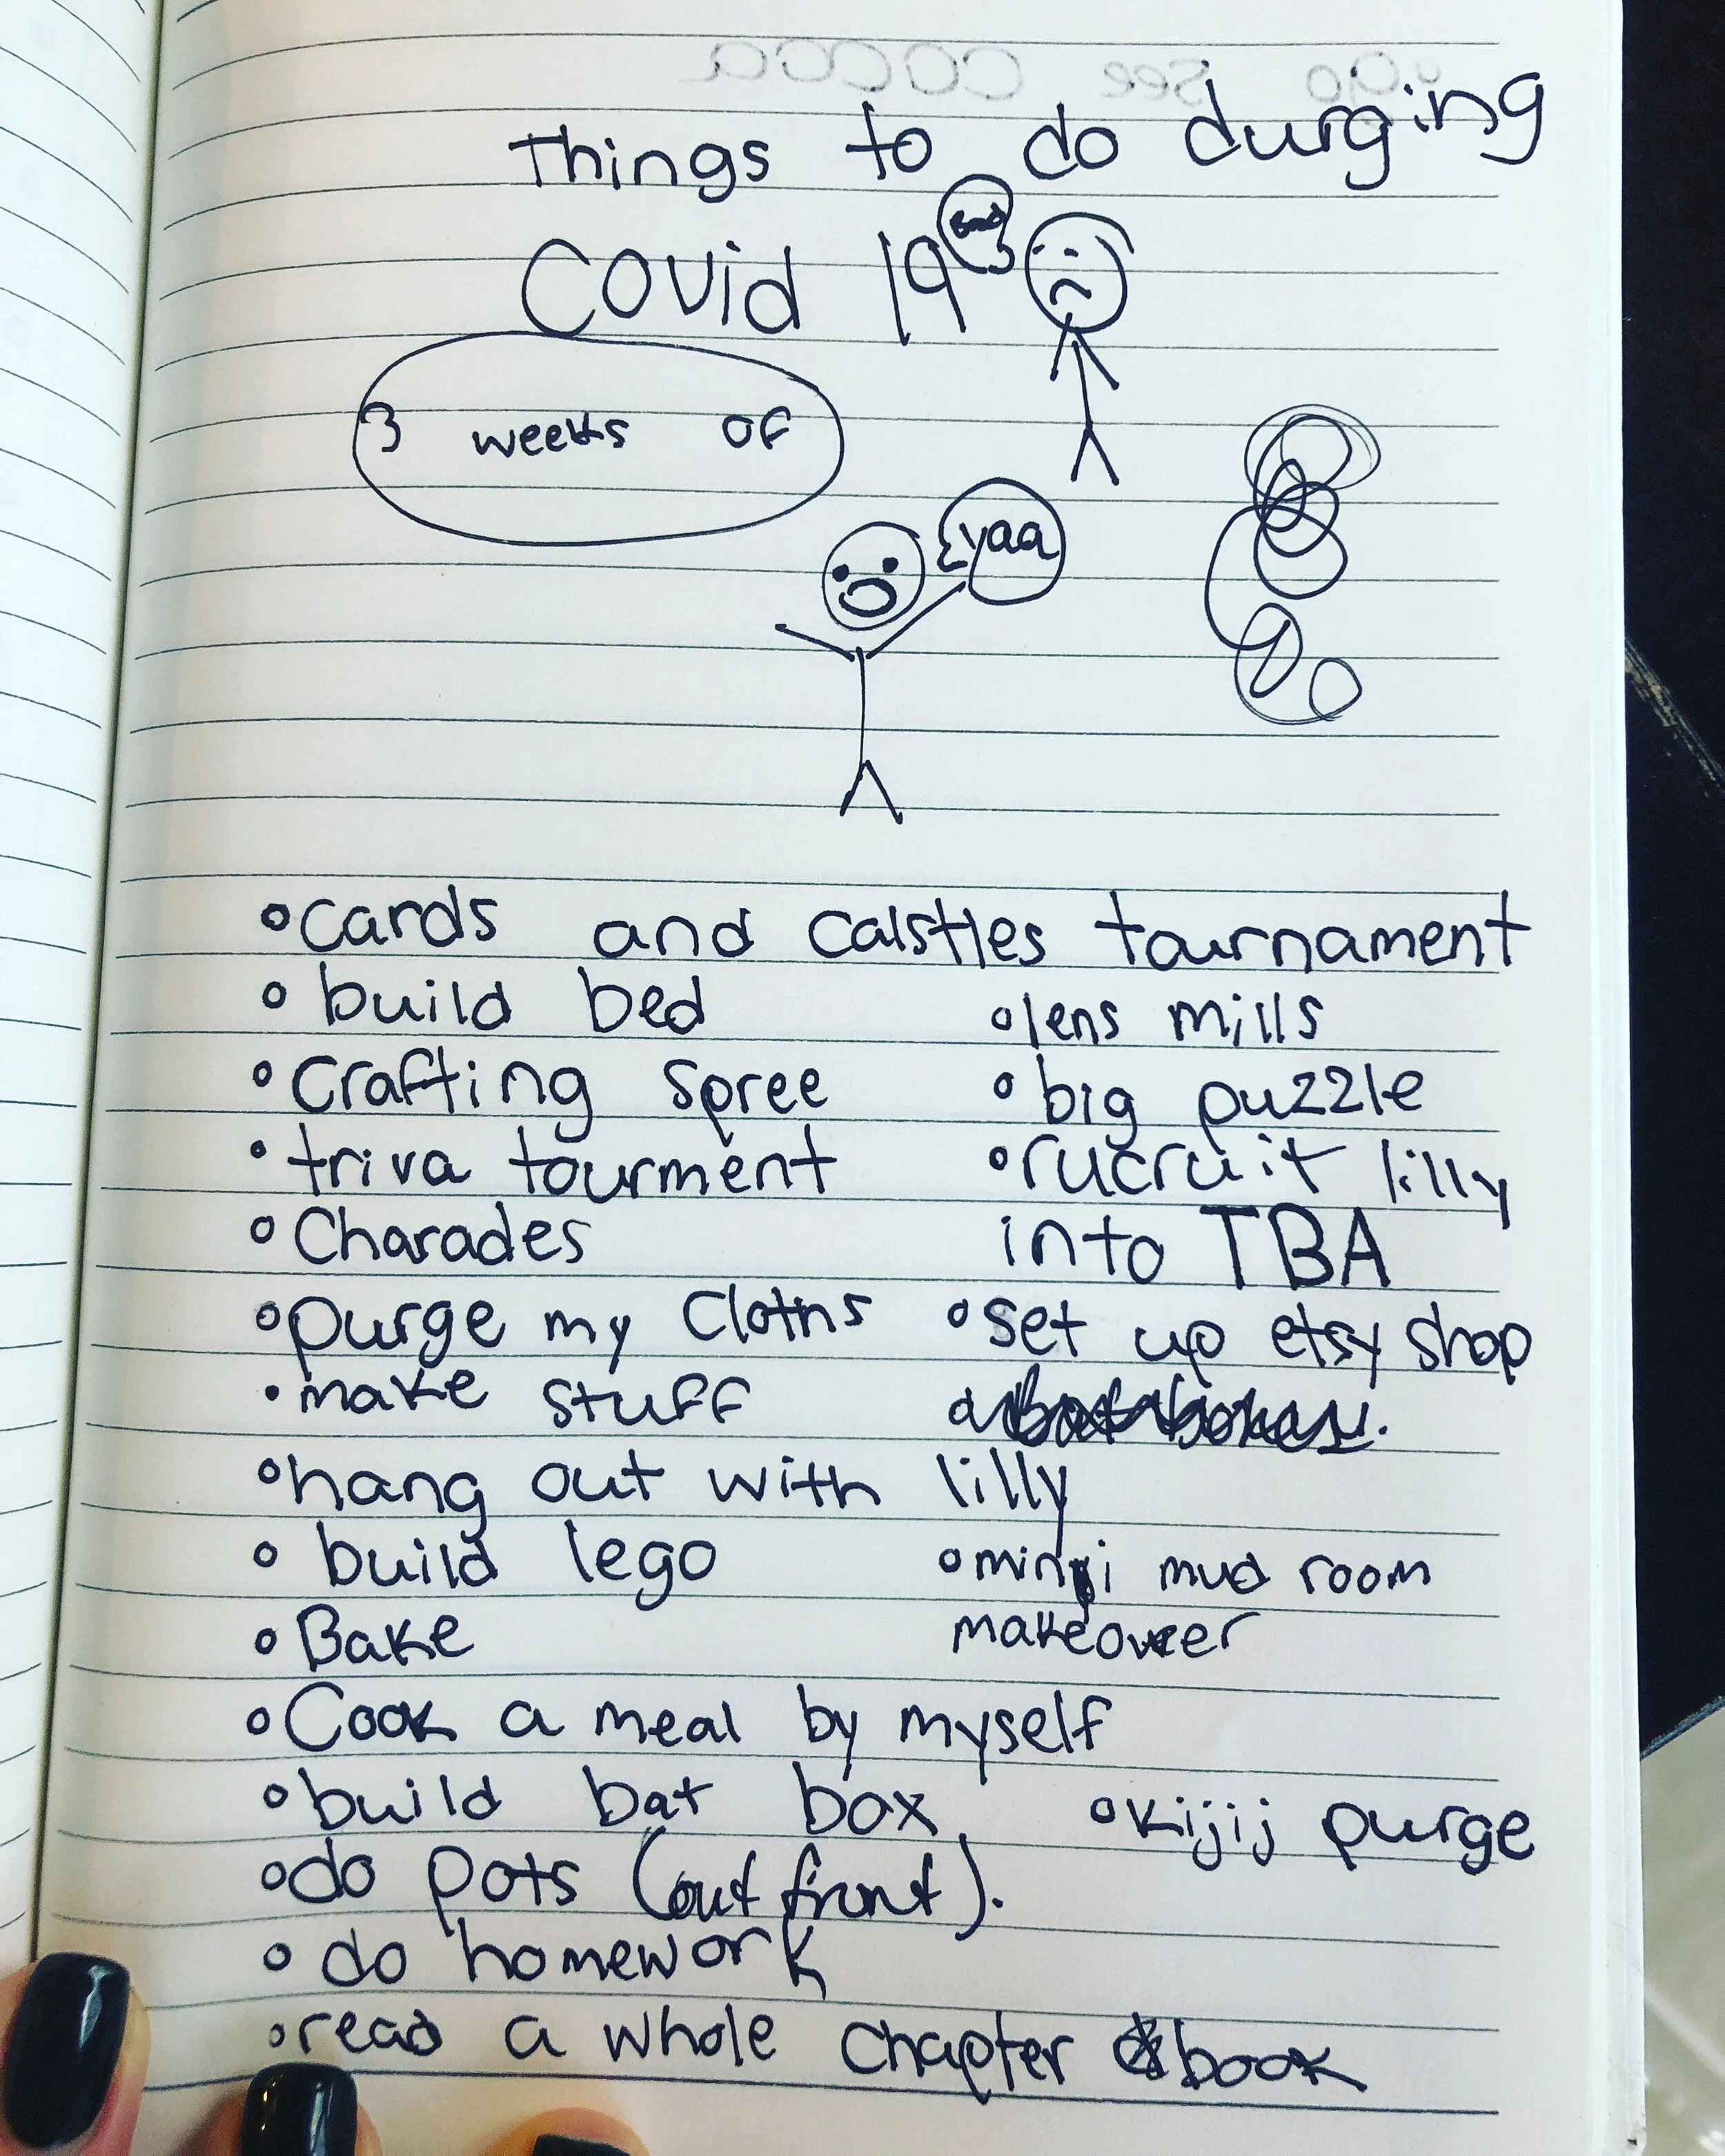 Things to do durging
Covid 19
3 weeks of
yaa
•cards and calstles tournament
• build bed
• lens mills
• crafting spree
• big puzzle
• triva tourment
• rucruit lilly
• Charades
into TBA
• purge my Cloths
• set up etsy shop
• make stuff
• hang out with lilly
• build lego
• mini mud room
makeover
• Bake
• Cook a meal by myself
• build bat box
• Kijij purge
• do pots (out front).
• do homework
• read a whole chapter book